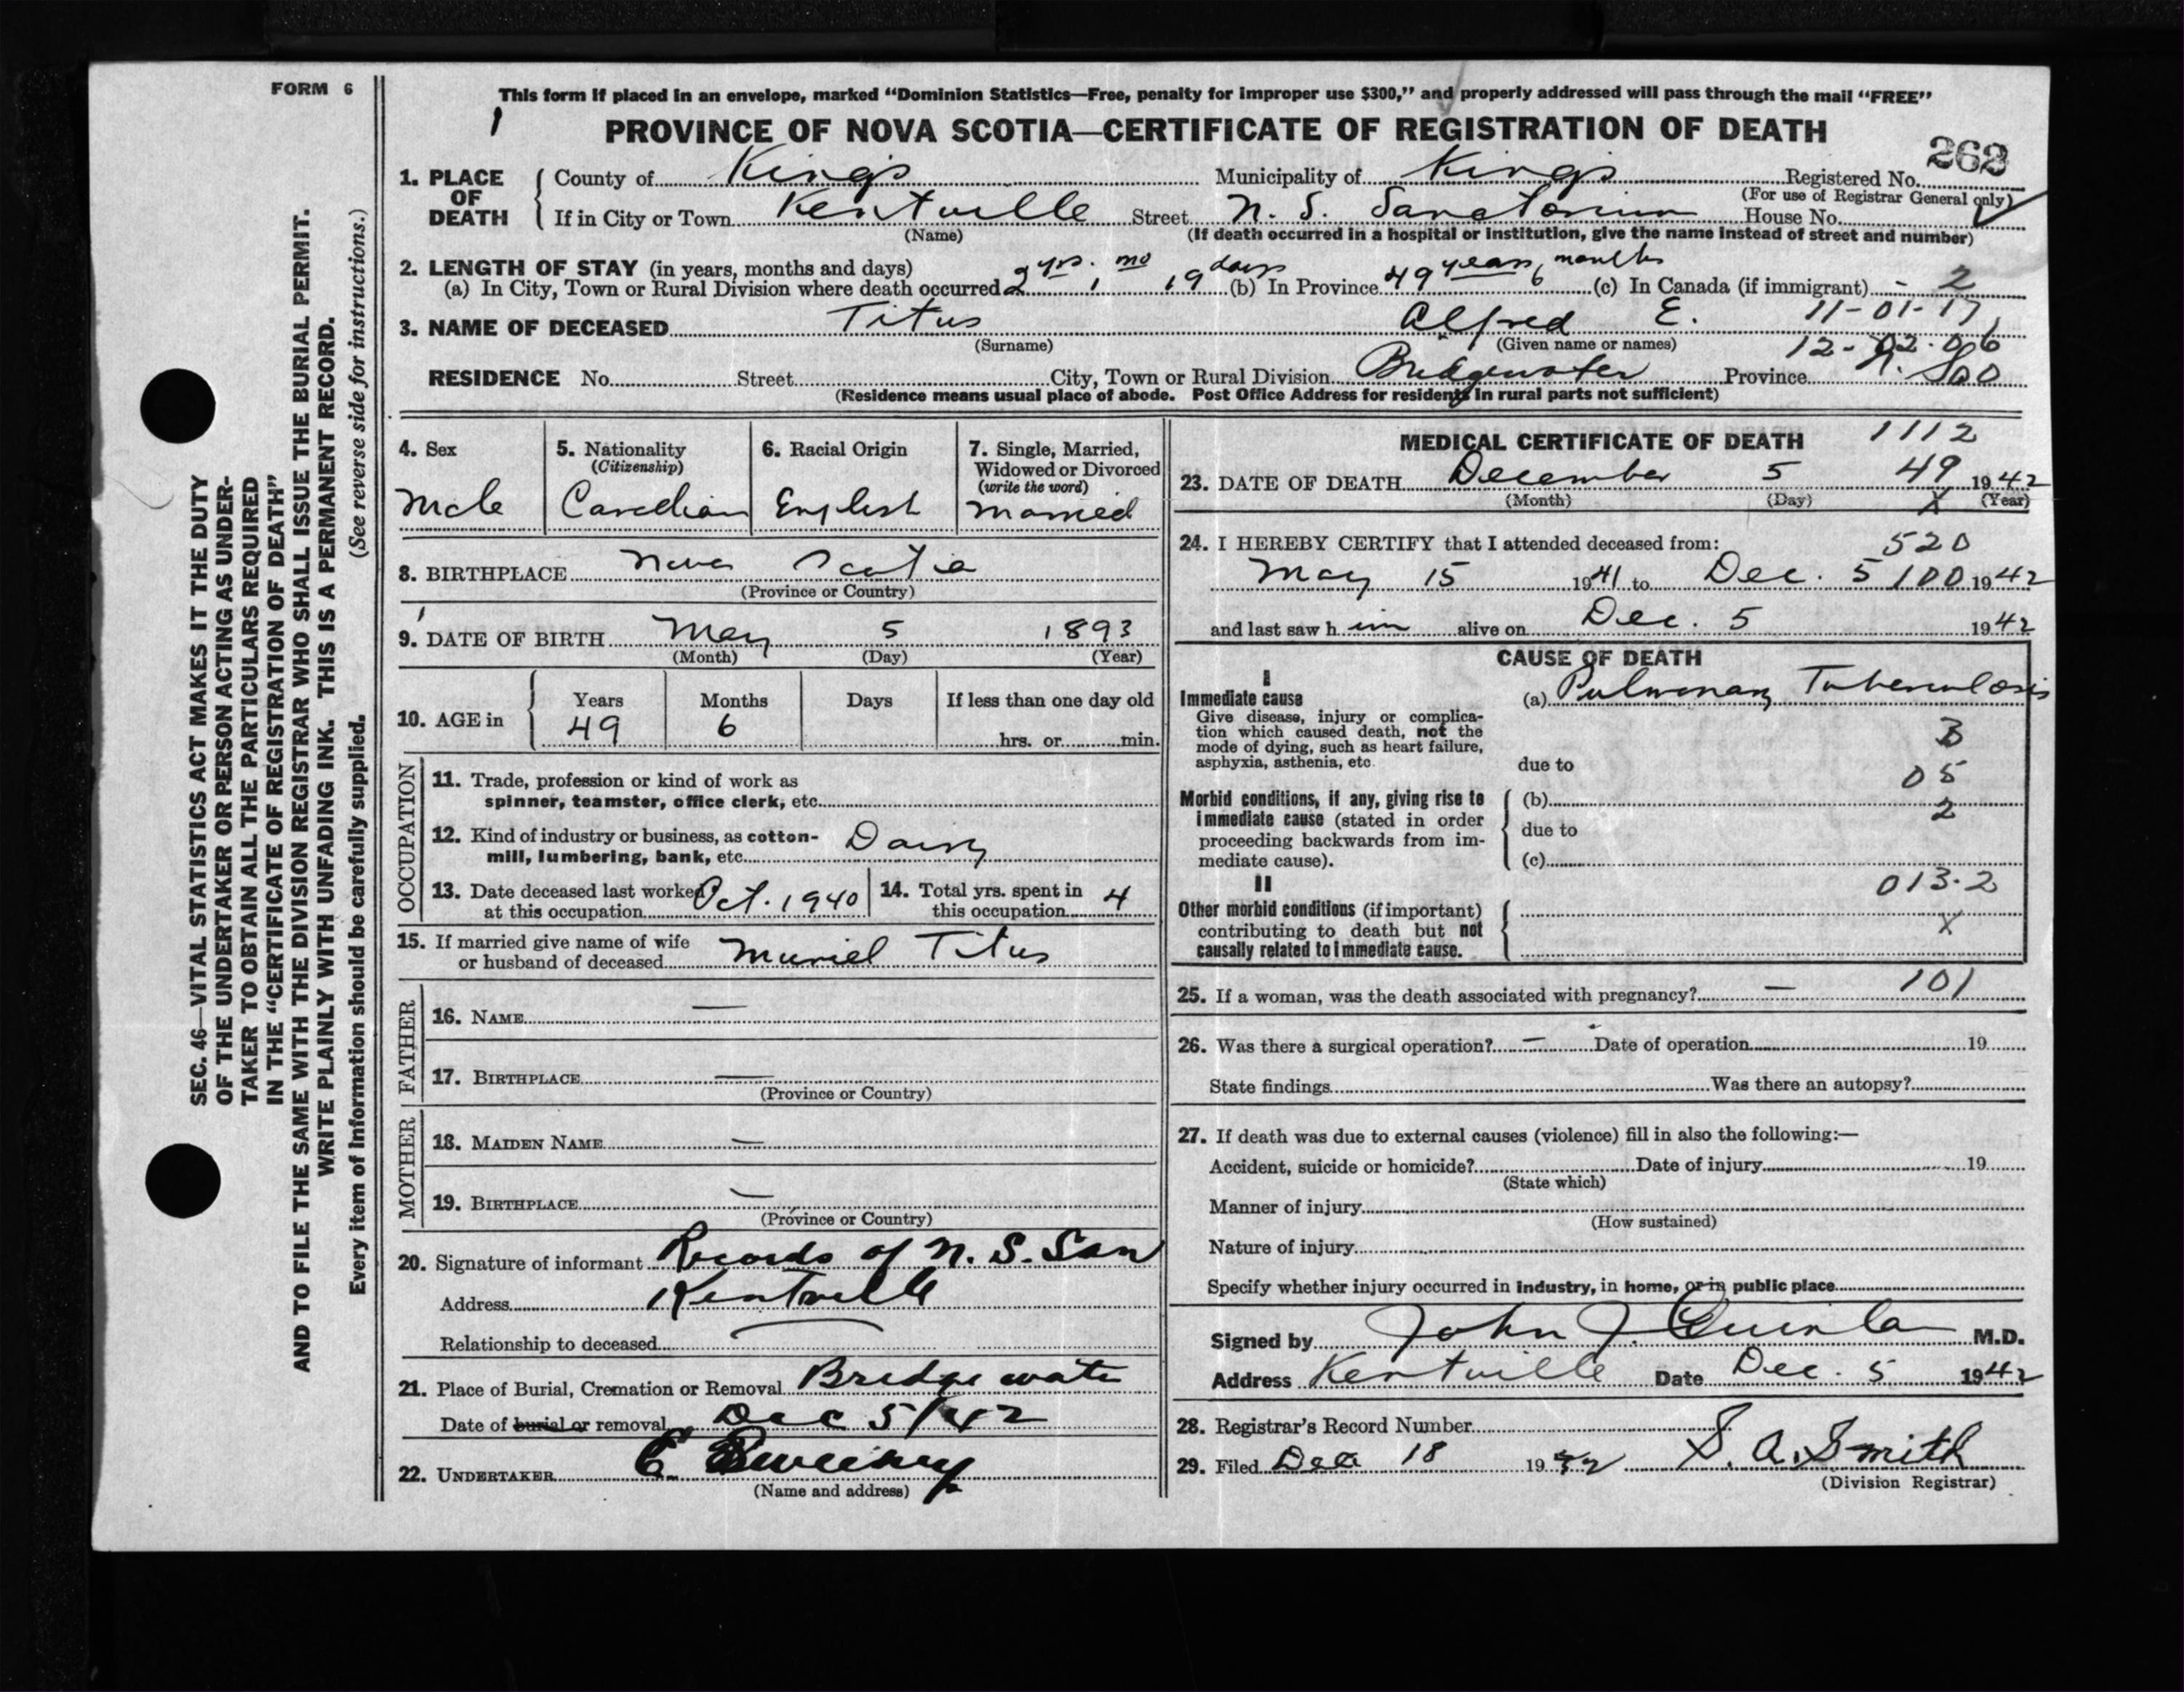 FORM 6
SEC. 46—VITAL STATISTICS ACT MAKES IT THE DUTY
OF THE UNDERTAKER OR PERSON ACTING AS UNDER-
TAKER TO OBTAIN ALL THE PARTICULARS REQUIRED
IN THE "CERTIFICATE OF REGISTRATION OF DEATH"
AND TO FILE THE SAME WITH THE DIVISION REGISTRAR WHO SHALL ISSUE THE BURIAL PERMIT.
WRITE PLAINLY WITH UNFADING INK. THIS IS A PERMANENT RECORD.
Every item of Information should be carefully supplied. (See reverse side for instructions.)
This form if placed in an envelope, marked "Dominion Statistics—Free, penalty for improper use $300," and properly addressed will pass through the mail "FREE"
1
PROVINCE OF NOVA SCOTIA—CERTIFICATE OF REGISTRATION OF DEATH
262
1. PLACE OF DEATH
County of Kings Municipality of Kings Registered No.
(For use of Registrar General only)
If in City or Town Kentville Street N. S. Sanatorium House No.
(Name) (If death occurred in a hospital or institution, give the name instead of street and number)
2. LENGTH OF STAY (in years, months and days)
(a) In City, Town or Rural Division where death occurred 2 yrs. 1 mo 19 days (b) In Province 49 years 6 months (c) In Canada (if immigrant) - 2
3. NAME OF DECEASED Titus Alfred E. 11-01-17
(Surname) (Given name or names) 12-02-06
RESIDENCE No. Street City, Town or Rural Division Bridgewater Province N. S.
(Residence means usual place of abode. Post Office Address for residents in rural parts not sufficient)
4. Sex
Male
5. Nationality
(Citizenship)
Canadian
6. Racial Origin
English
7. Single, Married,
Widowed or Divorced
(write the word)
Married
8. BIRTHPLACE Nova Scotia
(Province or Country)
9. DATE OF BIRTH May 5 1893
(Month) (Day) (Year)
10. AGE in
Years Months Days If less than one day old
49 6 hrs. or min.
OCCUPATION
11. Trade, profession or kind of work as
spinner, teamster, office clerk, etc.
12. Kind of industry or business, as cotton-
mill, lumbering, bank, etc. Dairy
13. Date deceased last worked
at this occupation Oct. 1940
14. Total yrs. spent in
this occupation 4
15. If married give name of wife
or husband of deceased Muriel Titus
FATHER
16. NAME —
17. BIRTHPLACE —
(Province or Country)
MOTHER
18. MAIDEN NAME —
19. BIRTHPLACE —
(Province or Country)
20. Signature of informant Records of N. S. San
Address Kentville
Relationship to deceased
21. Place of Burial, Cremation or Removal Bridgewater
Date of burial or removal Dec 5/42
22. UNDERTAKER E Sweeny
(Name and address)
MEDICAL CERTIFICATE OF DEATH 1112
49
23. DATE OF DEATH December 5 1942
(Month) (Day) X (Year)
24. I HEREBY CERTIFY that I attended deceased from: 520
May 15 1941 to Dec. 5 100 1942
and last saw him alive on Dec. 5 1942
CAUSE OF DEATH
I
Immediate cause
(a) Pulmonary Tuberculosis
Give disease, injury or complica-
tion which caused death, not the
mode of dying, such as heart failure,
asphyxia, asthenia, etc.
B
due to
05
Morbid conditions, if any, giving rise to
immediate cause (stated in order
proceeding backwards from im-
mediate cause).
(b)
2
due to
(c)
II
013-2
Other morbid conditions (if important)
contributing to death but not
causally related to immediate cause.
X
25. If a woman, was the death associated with pregnancy? — 101
26. Was there a surgical operation? — Date of operation 19
State findings Was there an autopsy?
27. If death was due to external causes (violence) fill in also the following:—
Accident, suicide or homicide? Date of injury 19
(State which)
Manner of injury
(How sustained)
Nature of injury
Specify whether injury occurred in industry, in home, or in public place
Signed by John J. Quinlan M.D.
Address Kentville Date Dec. 5 1942
28. Registrar's Record Number
29. Filed Dec 18 1942 S. A. Smith
(Division Registrar)